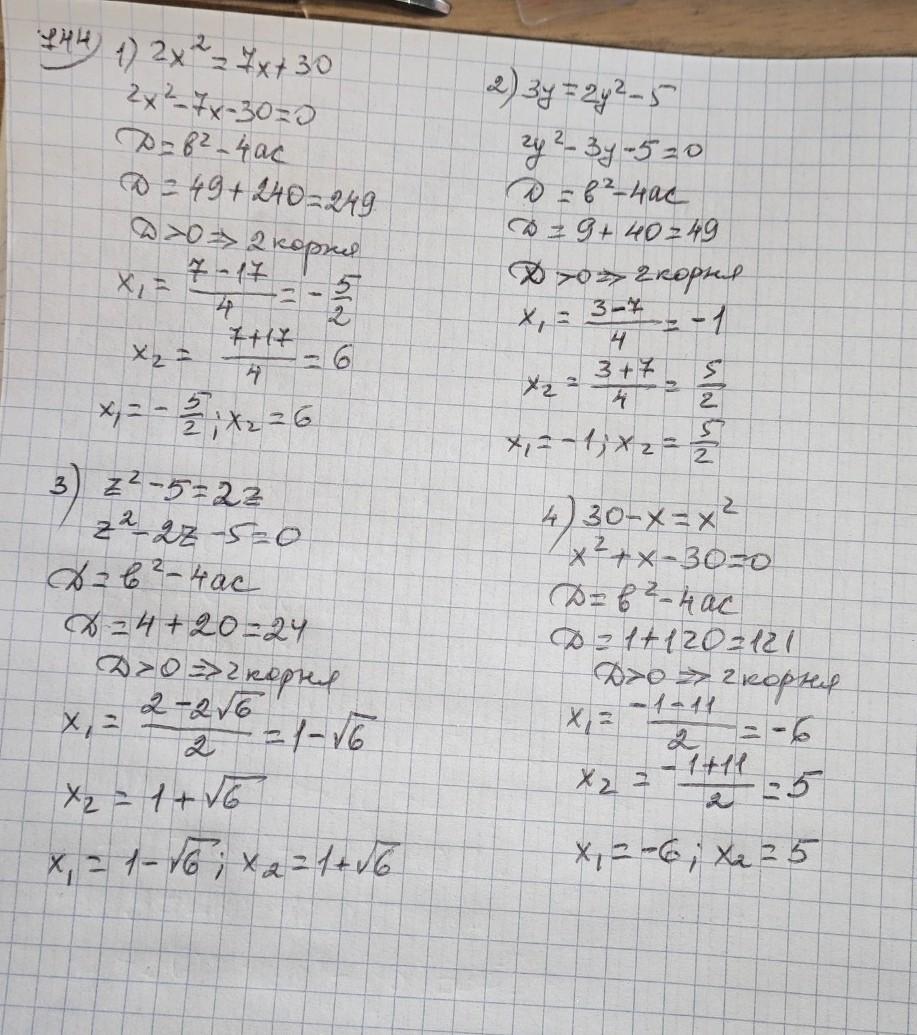 744) 1) 2x² = 7x + 30
2x² - 7x - 30 = 0
D = b² - 4ac
D = 49 + 240 = 249
D > 0 ⇒ 2 корня
x₁ = (7 - 17)/4 = - 5/2
x₂ = (7 + 17)/4 = 6
x₁ = - 5/2; x₂ = 6
2) 3y = 2y² - 5
2y² - 3y - 5 = 0
D = b² - 4ac
D = 9 + 40 = 49
D > 0 ⇒ 2 корня
x₁ = (3 - 7)/4 = -1
x₂ = (3 + 7)/4 = 5/2
x₁ = -1; x₂ = 5/2
3) z² - 5 = 2z
z² - 2z - 5 = 0
D = b² - 4ac
D = 4 + 20 = 24
D > 0 ⇒ 2 корня
x₁ = (2 - 2√6)/2 = 1 - √6
x₂ = 1 + √6
x₁ = 1 - √6; x₂ = 1 + √6
4) 30 - x = x²
x² + x - 30 = 0
D = b² - 4ac
D = 1 + 120 = 121
D > 0 ⇒ 2 корня
x₁ = (-1 - 11)/2 = -6
x₂ = (-1 + 11)/2 = 5
x₁ = -6; x₂ = 5